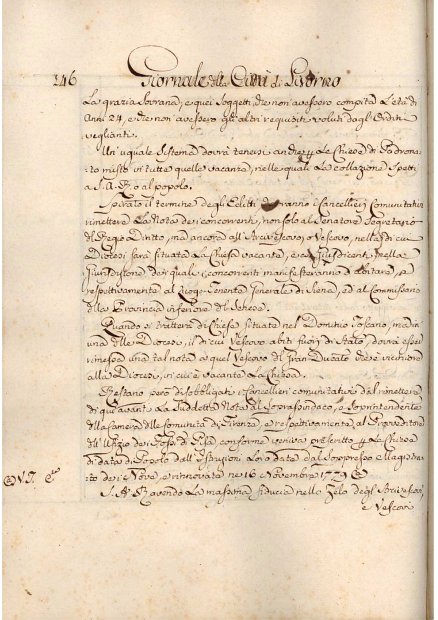 146 Giornale della Città di Livorno
La grazia Sovrana, e quei Soggetti, che non avessero compita l'età di
Anni 24, e che non avessero gli altri requisiti voluti dagl'Ordini
veglianti.
Un'uguale Sistema dovrà tenersi anche p le Chiese di Padrona-
to misto in tutte quelle vacanze, nelle quali La collazione Spetti
a S. A. R. o al popolo.
Spirato il termine degli Editti dovranno i Cancellieri Comunitativi
rimettere La Nota dei concorrenti, non solo al Senatore Segretario
del Regio Diritto, ma ancora all'Arcivescovo, o Vescovo, nella di cui
Diocesi sarà Situata La Chiesa vacante, e ai Giusdicenti, nella
Giurisdizione dei quali i concorrenti manifesteranno d'abitare, e
respettivamente al Luogo-Tenente Generale di Siena, ed al Commissario
della Provincia inferiore di Senese.
Quando si tratterà di Chiese situate nel Dominio Toscano, ma in
una delle Diocesi, il di cui Vescovo abiti fuori di Stato, dovrà esser
rimessa una tal nota a quel Vescovo del Gran-Ducato che è vicino
alla Diocesi, in cui è vacante La Chiesa.
Restano però disobbligati i Cancellieri comunitativi dal rimettere
di qui avanti La Suddetta Nota al Soprasindaco, e Soprintendente
della Camera delle Comunità di Firenze, e respettivamente al Provveditore
dell'Ufizio dei Fossi di Pisa, conforme veniva prescritto p le Chiese
di data di Popolo dall'Istruzioni Loro date dal Soppresso Magistra-
to dei Nove, e rinnovate ne 16 Novembre 1779
S. A. R. avendo La massima fiducia nello Zelo degl'Arcivescovi,
e Vescovi